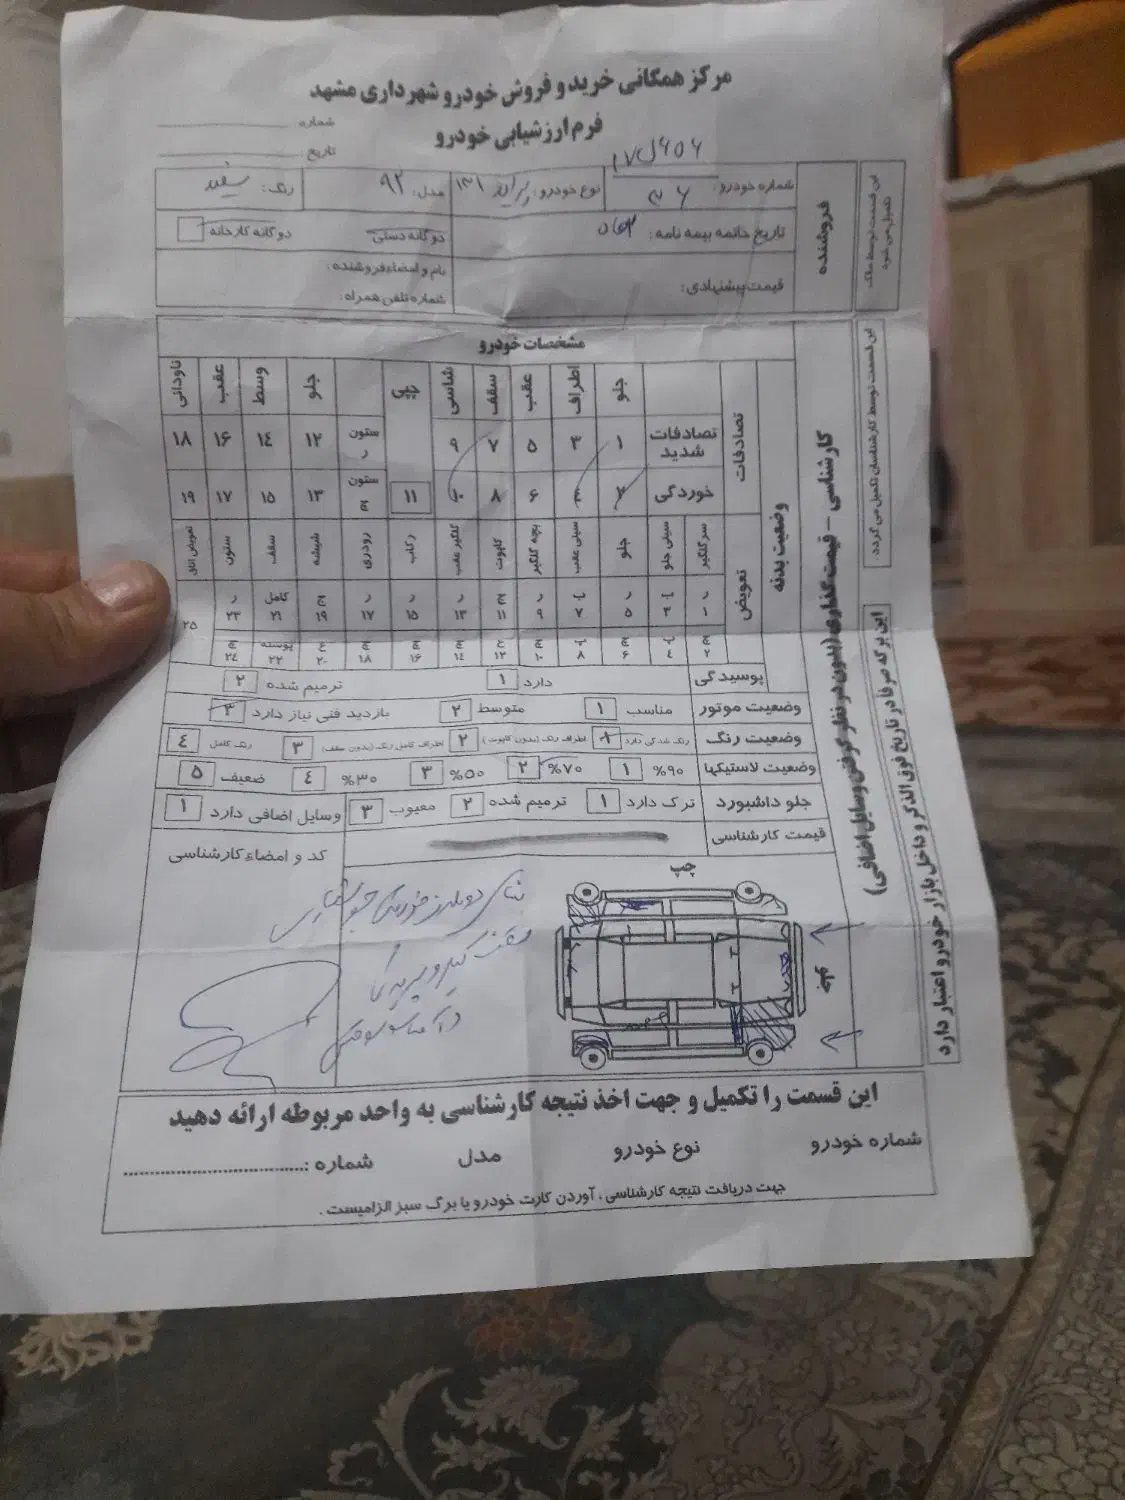 مرکز همگانی خرید و فروش خودرو شهرداری مشهد
فرم ارزشیابی خودرو
شماره
تاریخ
این قسمت توسط مالک تکمیل می شود
فروشنده
شماره خودرو:
نوع خودرو: پراید ۱۳۱
مدل: ۹۲
رنگ: سفید
تاریخ خاتمه بیمه نامه:
دوگانه دستی
دوگانه کارخانه
قیمت پیشنهادی:
نام و امضاء فروشنده:
شماره تلفن همراه:
این قسمت توسط کارشناسان تکمیل می گردد.
کارشناسی - قیمت گذاری (بدون در نظر گرفتن وسایل اضافی)
این برگه صرفا در تاریخ فوق الذکر و داخل بازار خودرو اعتبار دارد
مشخصات خودرو
وضعیت بدنه
تصادفات
جلو اطراف عقب سقف شاسی جلو وسط عقب ناودانی
تصادفات شدید ۱ ۳ ۵ ۷ ۹ ستون ر ۱۲ ۱۴ ۱۶ ۱۸
خوردگی ۲ ۶ ۸ ۱۰ ۱۱ ستون چ ۱۳ ۱۵ ۱۷ ۱۹
تعویض
سر گلگیر سینی جلو جلو سینی عقب بچه گلگیر کاپوت گلگیر عقب رکاب رودری شیشه سقف ستون تعویض اتاق
۱ ۳ ۵ ۷ ۹ ۱۱ ۱۳ ۱۵ ۱۷ ۱۹ کامل ۲۱ ۲۳ ۲۵
۲ ۴ ۶ ۸ ۱۰ ۱۲ ۱۴ ۱۶ ۱۸ ۲۰ پوسته ۲۲ ۲۴
پوسیدگی دارد ۱ ترمیم شده ۲
وضعیت موتور مناسب ۱ متوسط ۲ بازدید فنی نیاز دارد ۳
وضعیت رنگ رنگ شدگی دارد ۱ اطراف رنگ (بدون کاپوت) ۲ اطراف کامل رنگ (بدون سقف) ۳ رنگ کامل ۴
وضعیت لاستیکها ۹۰% ۱ ۷۰% ۲ ۵۰% ۳ ۳۰% ۴ ضعیف ۵
جلو داشبورد ترک دارد ۱ ترمیم شده ۲ معیوب ۳ وسایل اضافی دارد ۱
قیمت کارشناسی
کد و امضاء کارشناسی
چپ
این قسمت را تکمیل و جهت اخذ نتیجه کارشناسی به واحد مربوطه ارائه دهید
شماره خودرو نوع خودرو مدل شماره :
جهت دریافت نتیجه کارشناسی ، آوردن کارت خودرو یا برگ سبز الزامیست .